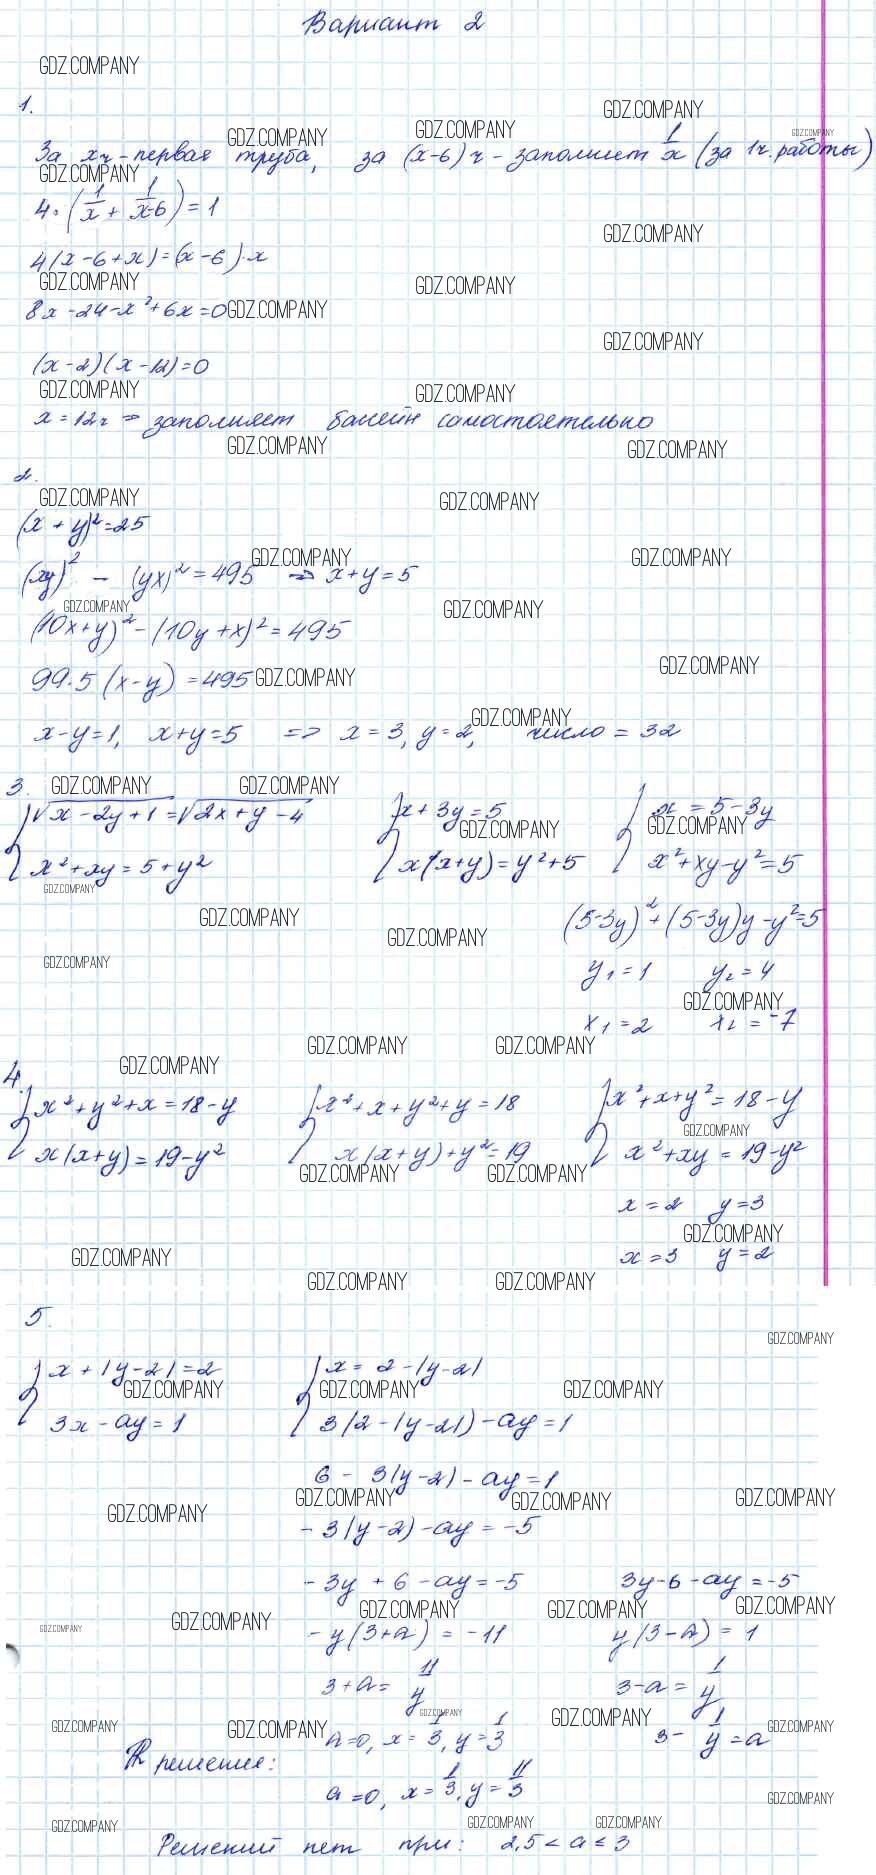 Вариант 2
1.
За x ч - первая труба, за (x-6) ч - заполняет 1/x (за 1 ч. работы)
4·(1/x + 1/x-6) = 1
4(x-6+x) = (x-6)·x
8x-24-x²+6x=0
(x-2)(x-12)=0
x=12ч ⇒ заполняет бассейн самостоятельно
2.
(x+y)²=25
(xy)² - (yx)² = 495 ⇒ x+y=5
(10x+y)² - (10y+x)² = 495
99·5(x-y) = 495
x-y=1, x+y=5 ⇒ x=3, y=2, число = 32
3.
{√x-2y+1 = √2x+y-4 {x+3y=5 {x = 5-3y
x²+xy=5+y² x(x+y)=y²+5 x²+xy-y²=5
(5-3y)²+(5-3y)y-y²=5
y₁=1 y₂=4
x₁=2 x₂=-7
4.
{x²+y²+x=18-y {x²+x+y²+y=18 {x²+x+y²=18-y
x(x+y)=19-y² x(x+y)+y²=19 x²+xy=19-y²
x=2 y=3
x=3 y=2
5.
{x+|y-2|=2 {x=2-|y-2|
3x-ay=1 3(2-|y-2|)-ay=1
6-3(y-2)-ay=1
-3(y-2)-ay=-5
-3y+6-ay=-5 3y-6-ay=-5
-y(3+a)=-11 y(3-a)=1
3+a=11/y 3-a=1/y
a=0, x=1/3, y=1/3 3-1/y=a
решение:
a=0, x=1/3, y=11/3
Решений нет при: 2,5<a≤3
GDZ.COMPANY